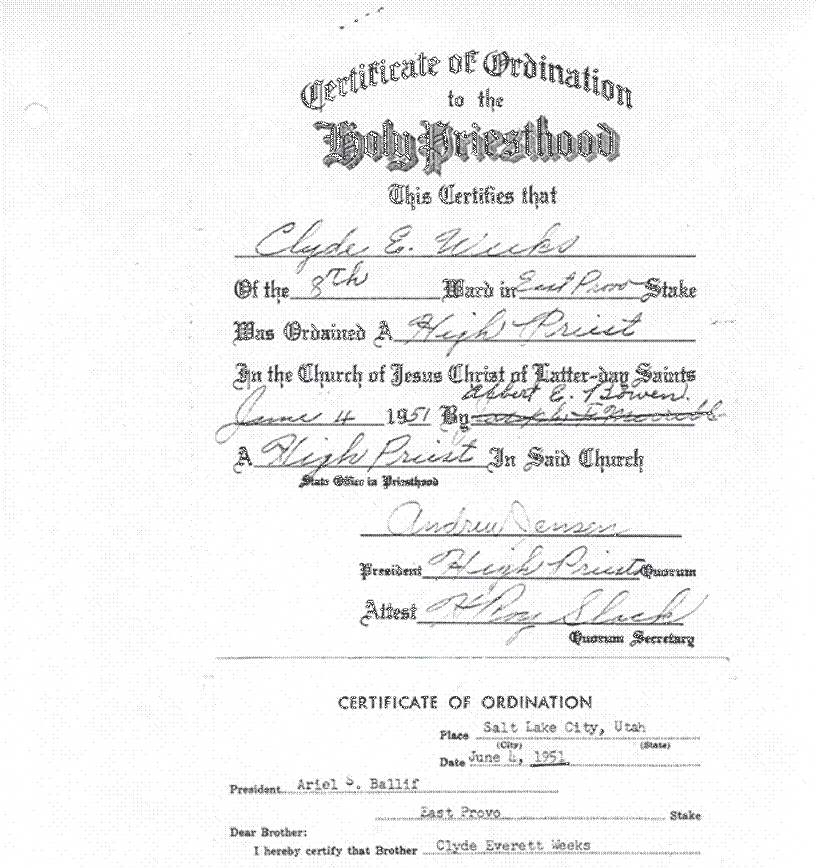 Certificate of Ordination
to the
Holy Priesthood
This Certifies that
Clyde E. Weeks
Of the 8th Ward in East Provo Stake
Was Ordained A High Priest
In the Church of Jesus Christ of Latter-day Saints
Albert E. Bowen.
June 4 1951 By
A High Priest In Said Church
State Office in Priesthood
Andrew Jensen
President High Priests Quorum
Attest Roy Slack
Quorum Secretary
CERTIFICATE OF ORDINATION
Place Salt Lake City, Utah
(City) (State)
Date June 4, 1951
President Ariel S. Ballif
East Provo Stake
Dear Brother:
I hereby certify that Brother Clyde Everett Weeks